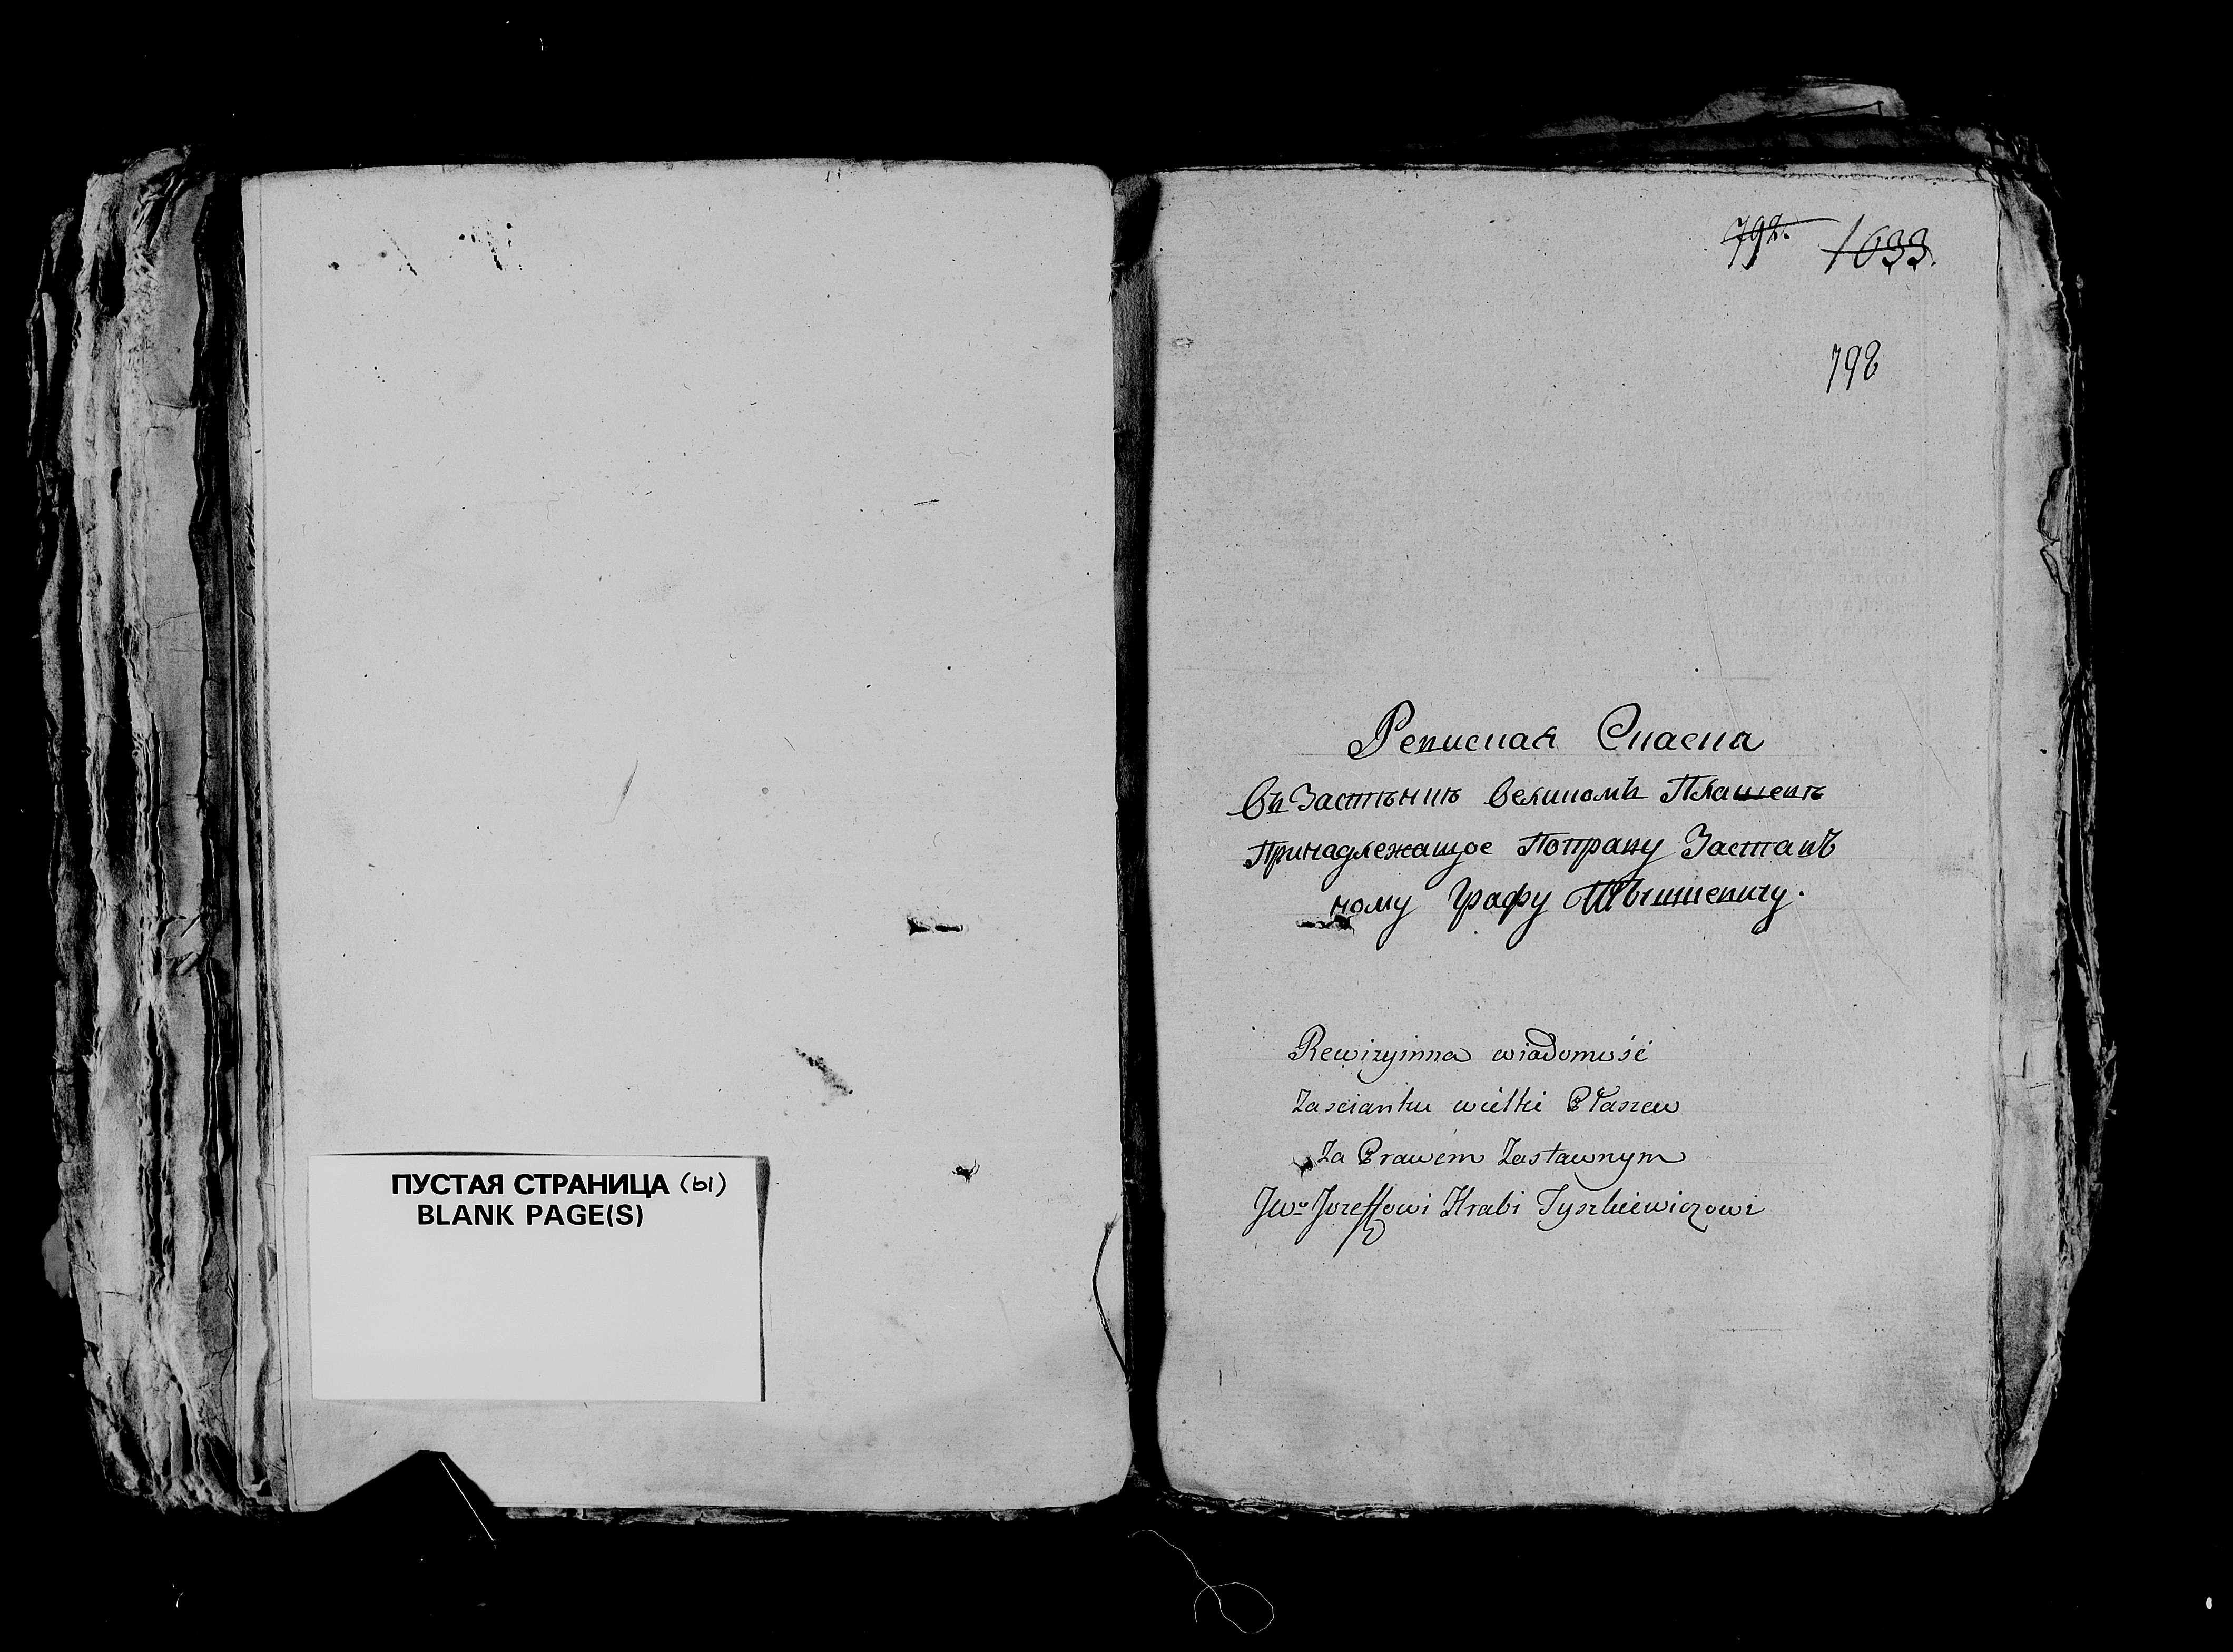 ПУСТАЯ СТРАНИЦА (ы)
BLANK PAGE(S)
798. 1633.
798
Ревизкая Сказка
Въ Застѣнкѣ великомъ Плашевѣ
Принадлежащое Поправу Застав
ному Графу Тышкевичу.
Rewizyinna wiadomość
Zascianku wielki Płaszew
Za Prawem Zastawnym
JWo Jozeffowi Hrabi Tyszkiewiczowi